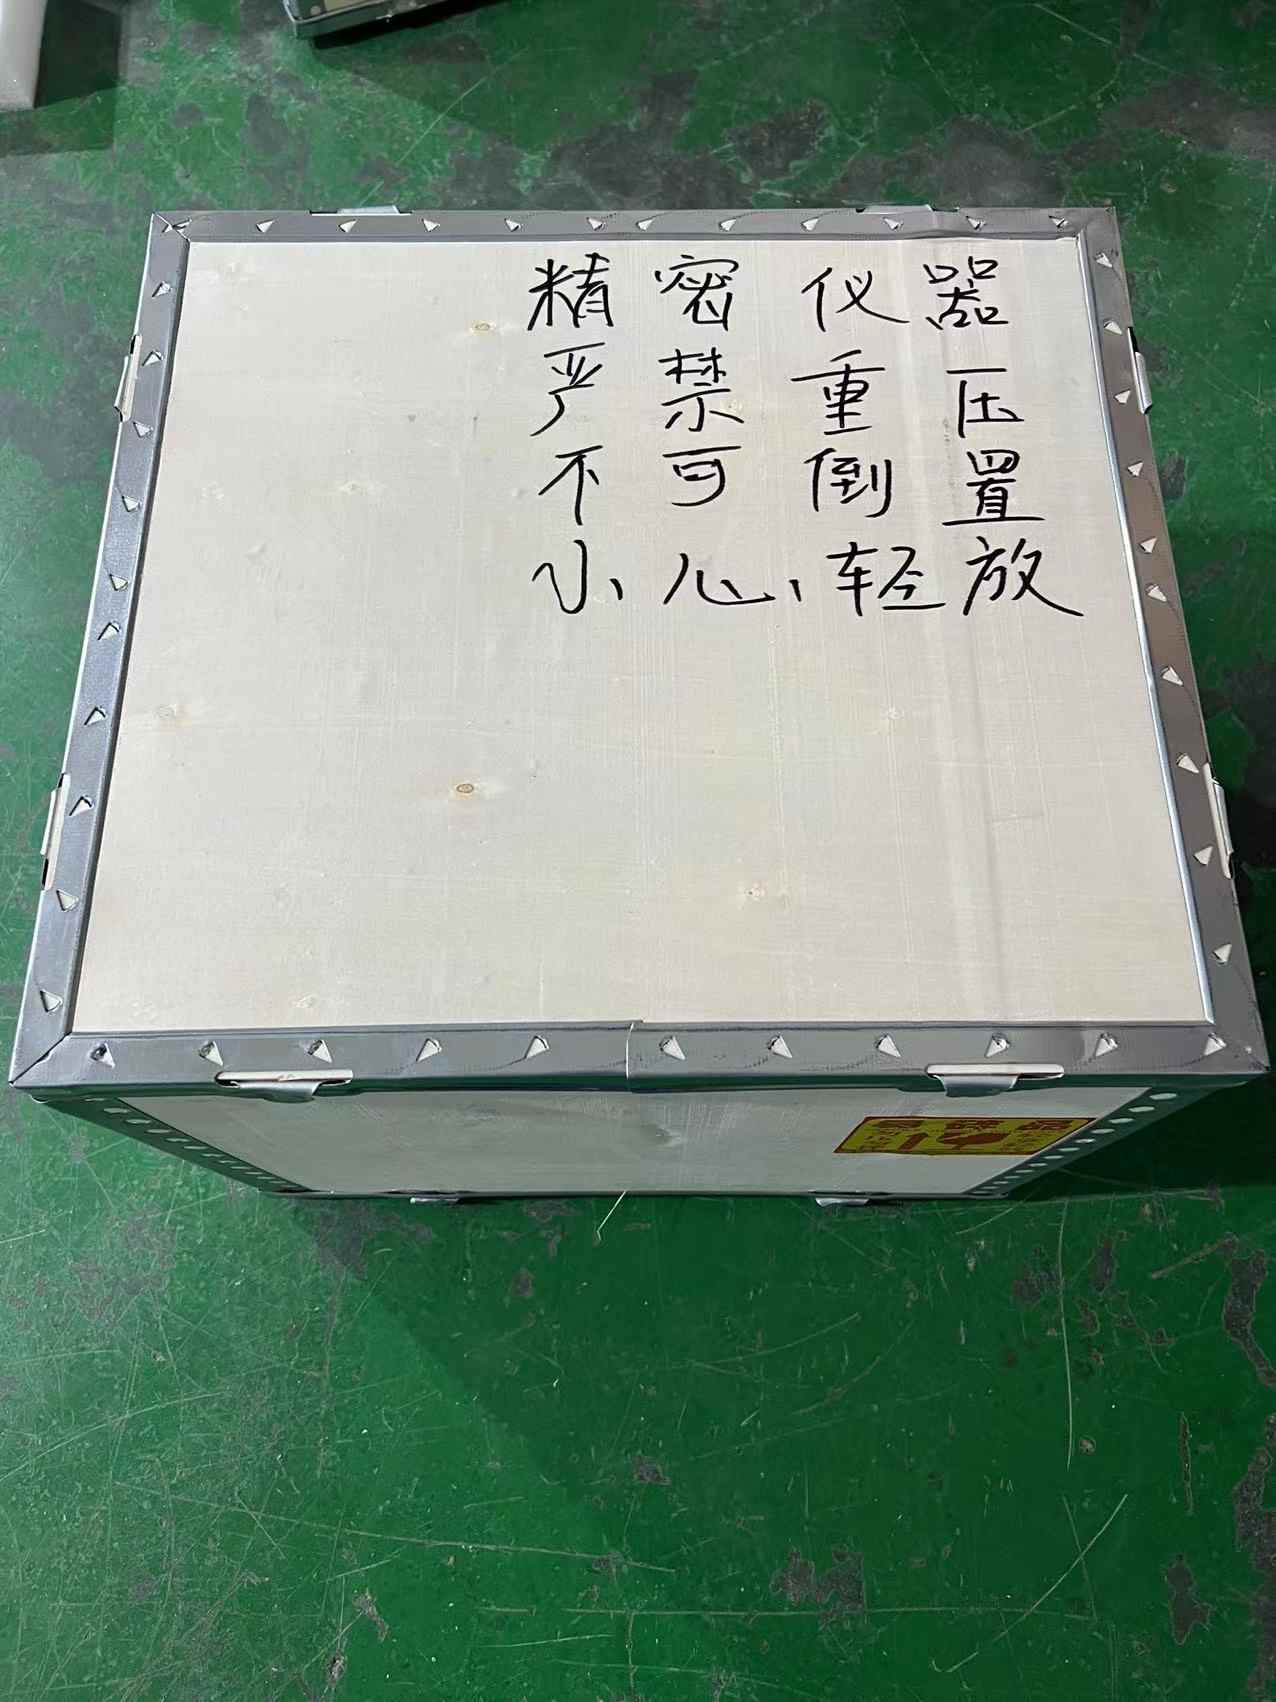 精密仪器
严禁重压
不可倒置
小心轻放
易碎品